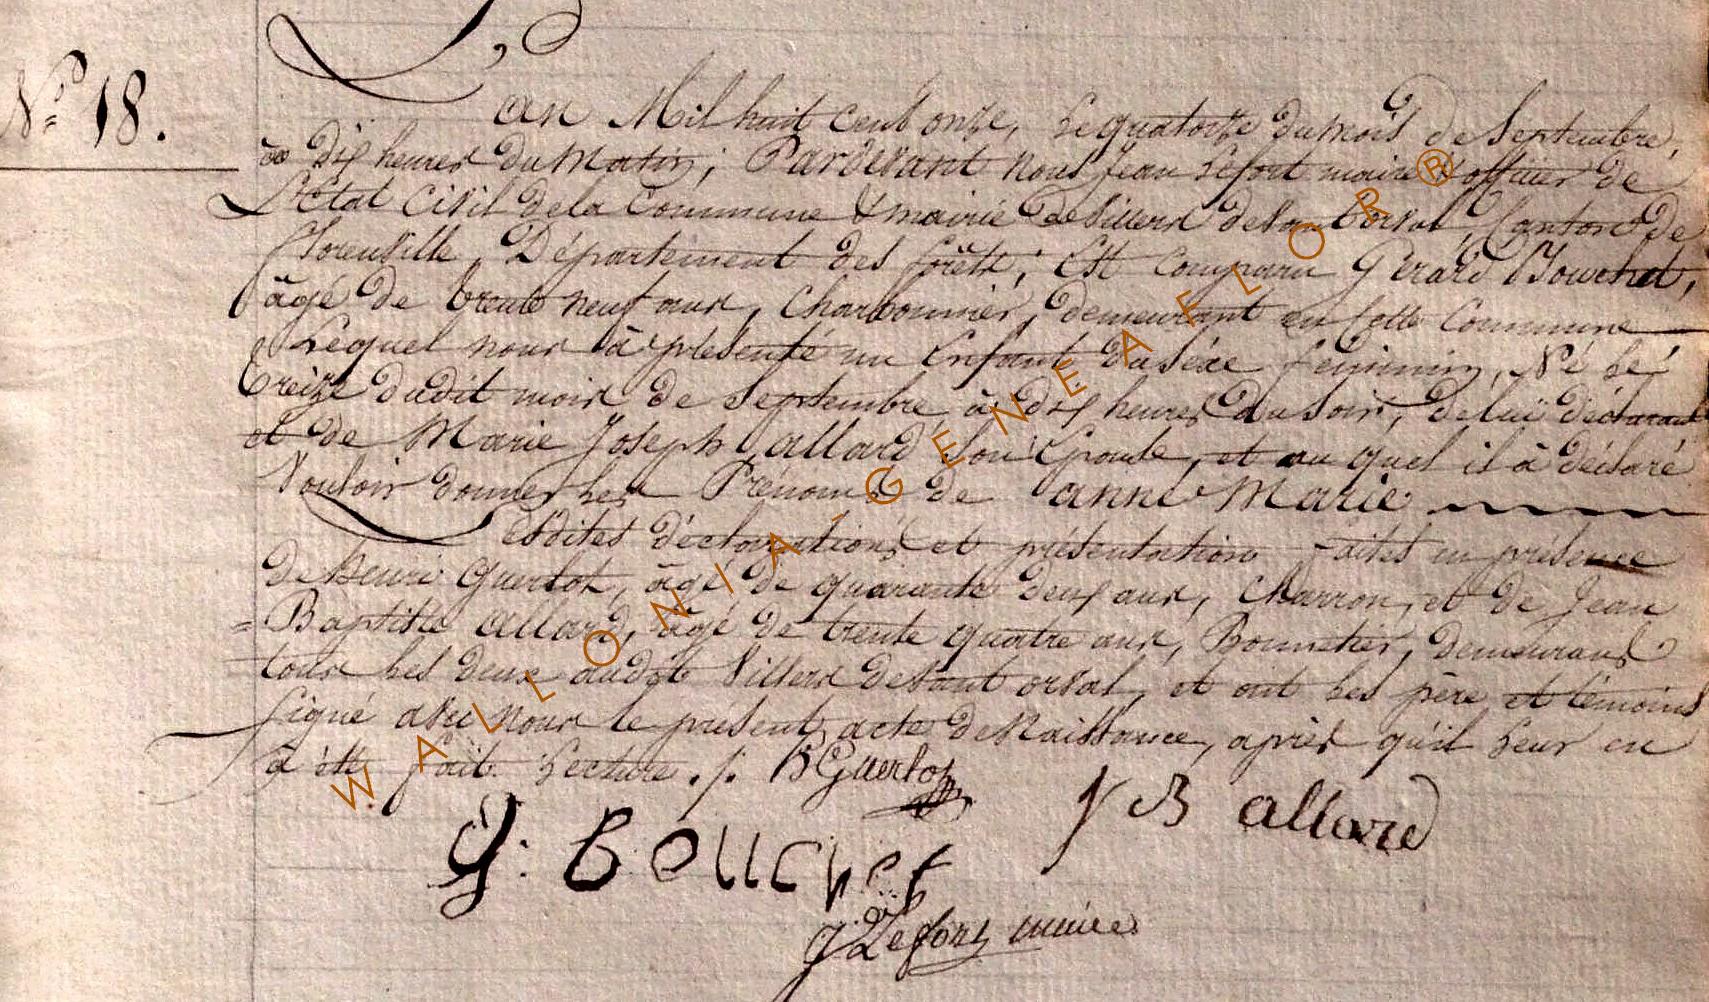 N.º 18.
L'an Mil huit cent onze, Le quatorze du mois de Septembre,
à Dix heures du Matin; Pardevant Nous Jean Lefort maire & officier de
L'Etat Civil de la Commune & mairie de Villers devant orval, Canton de
Florenville, Département des forêts; Est Comparu Gerard Bouchet,
âgé de trente neuf ans, Charbonnier, demeurant en cette Commune
Lequel nous à présenté un Enfant du séxe feminin, Né Le
treize dudit mois de Septembre à dix heures du Soir, de lui déclarant
et de Marie Joseph allard Son Epouse, et au quel il à déclaré
Vouloir donner Les Prénoms de anne Marie
Lesdites déclarations et présentation Faites en présence
de Henri Guerlot, âgé de quarante deux ans, Charron, et de Jean
Baptiste allard, âgé de trente quatre ans, Bonnetier, demeurans
tous Les deux audit Villers devant orval, et ont Les père et témoins
Signé avec nous le présent acte de Naissance, après qu'il Leur en
à été fait Lecture ./.
H Guerlot
J B allard
G: Bouchet
J Lefort maire
WALLONIA-GENEAFLOR®